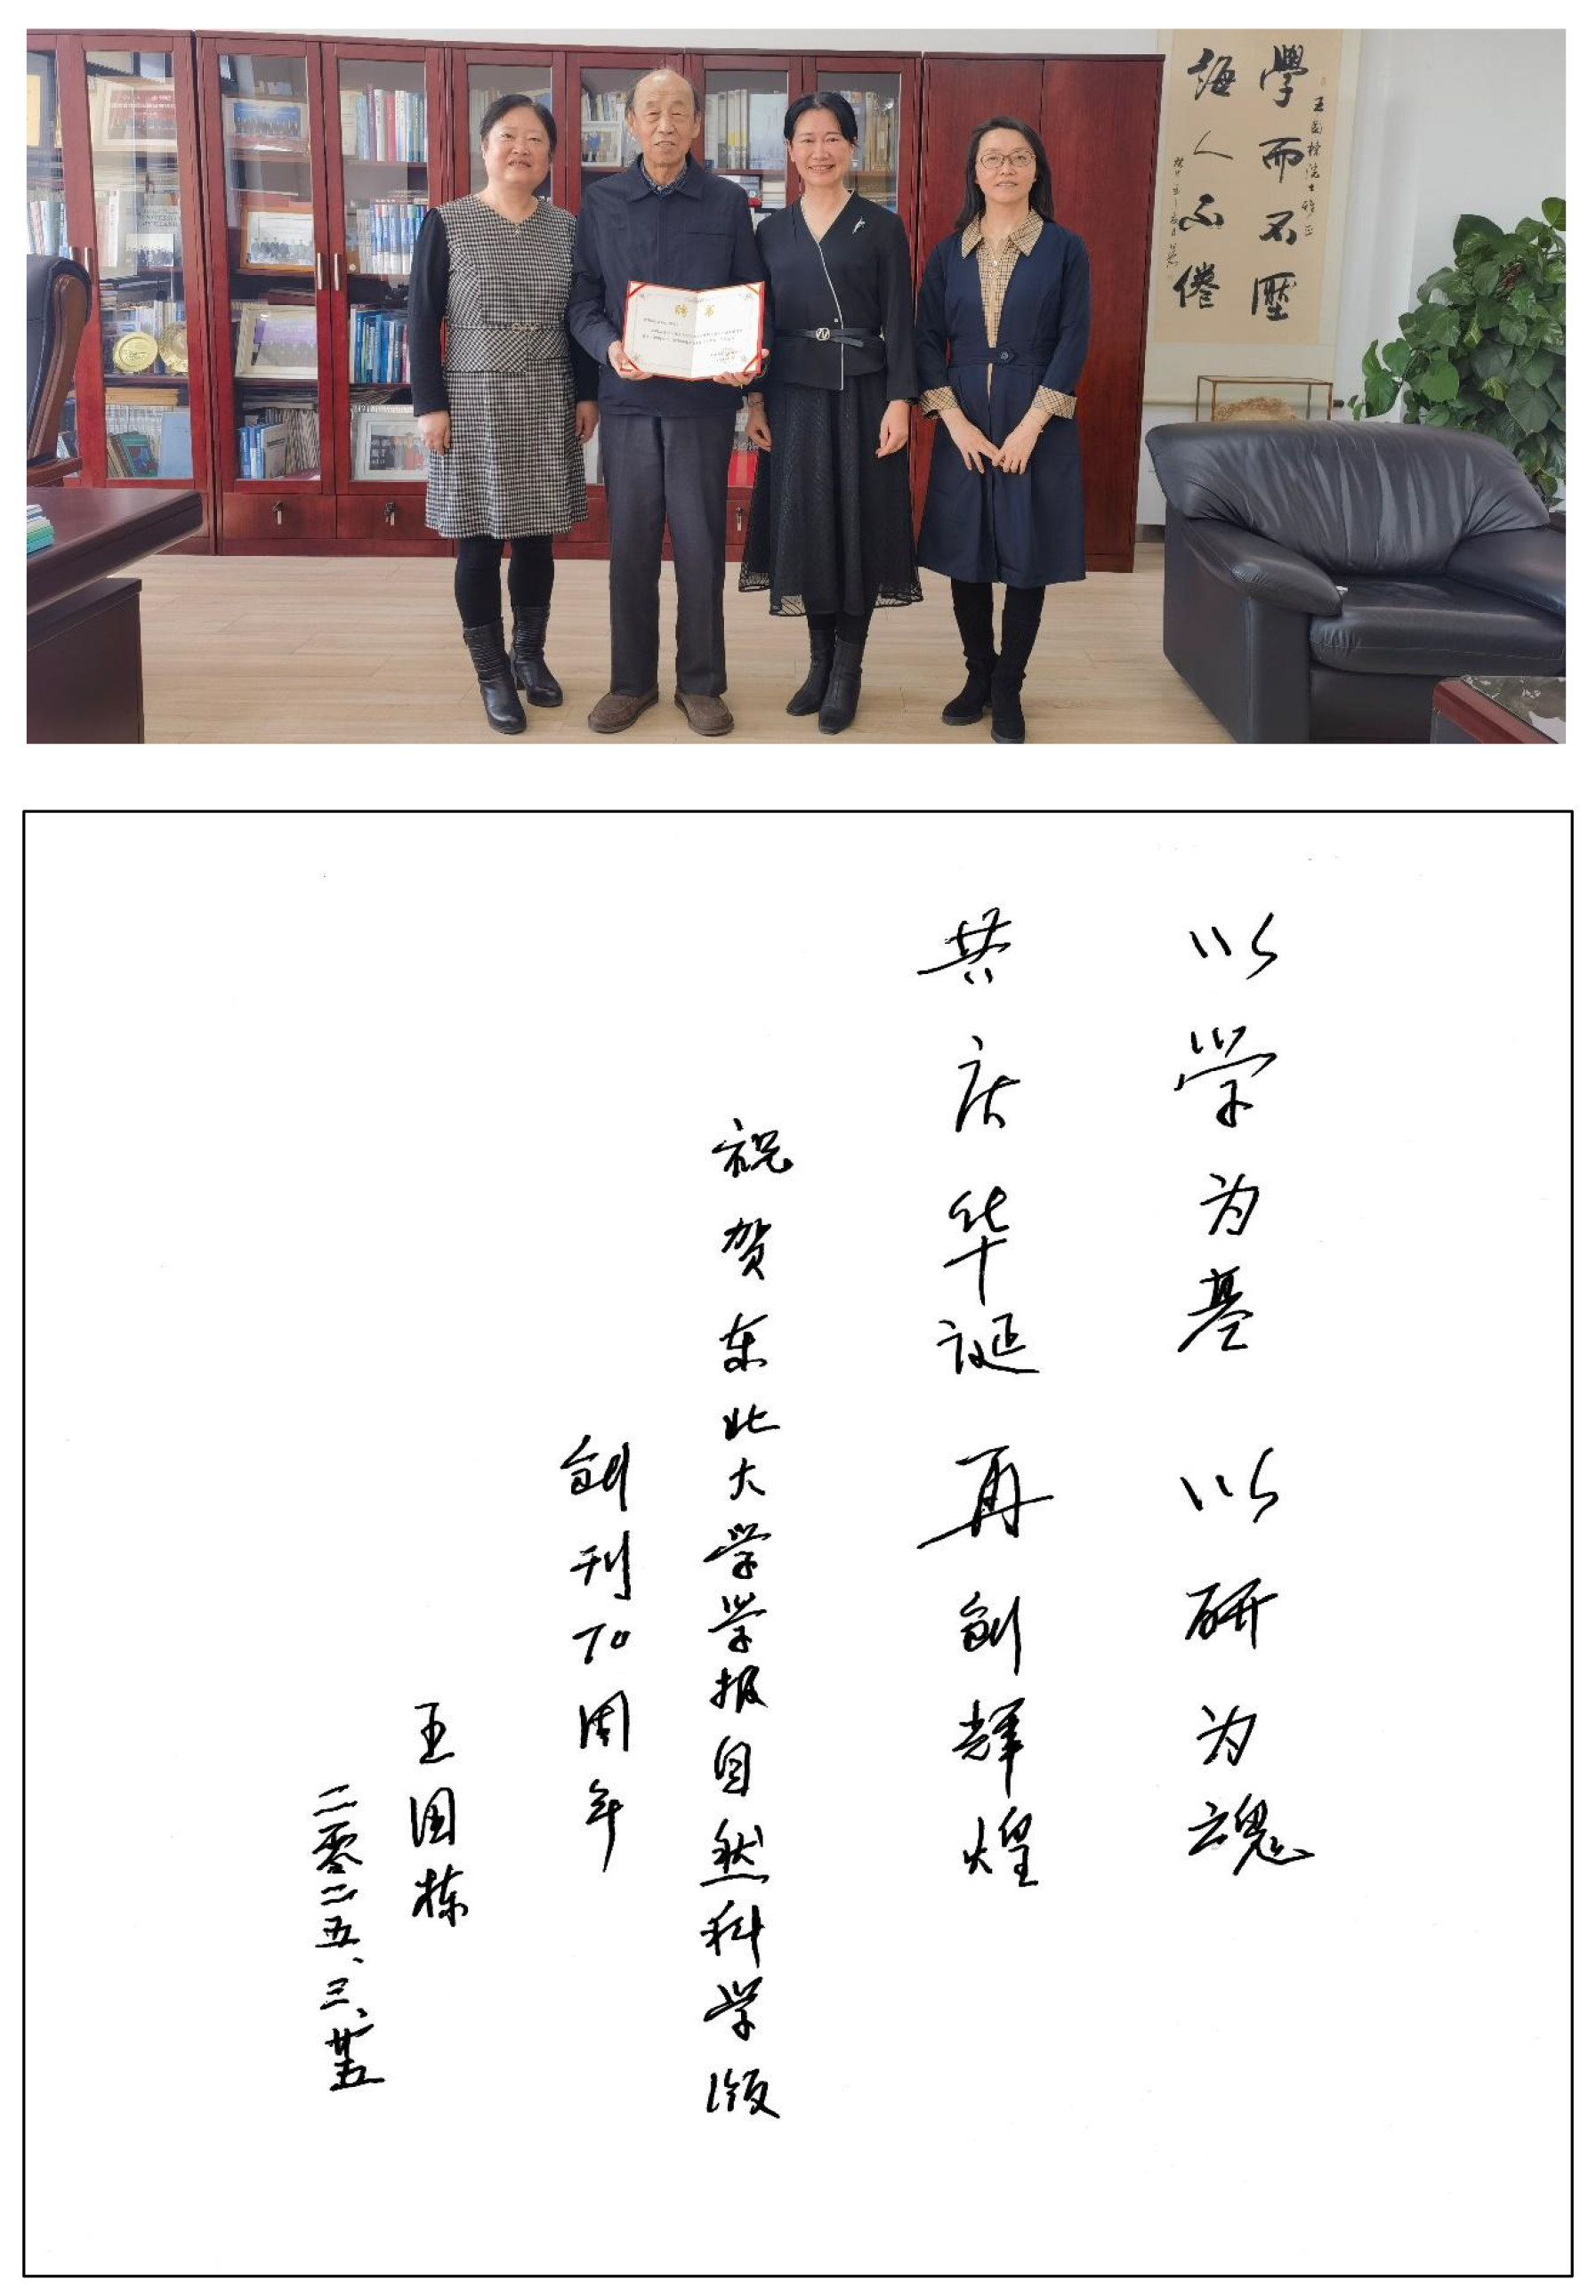 聘书
學而不厭
誨人不倦
以学为基 以研为魂
共庆华诞 再创辉煌
祝贺东北大学学报自然科学版
创刊70周年
王国栋
二零二五、三、廿五